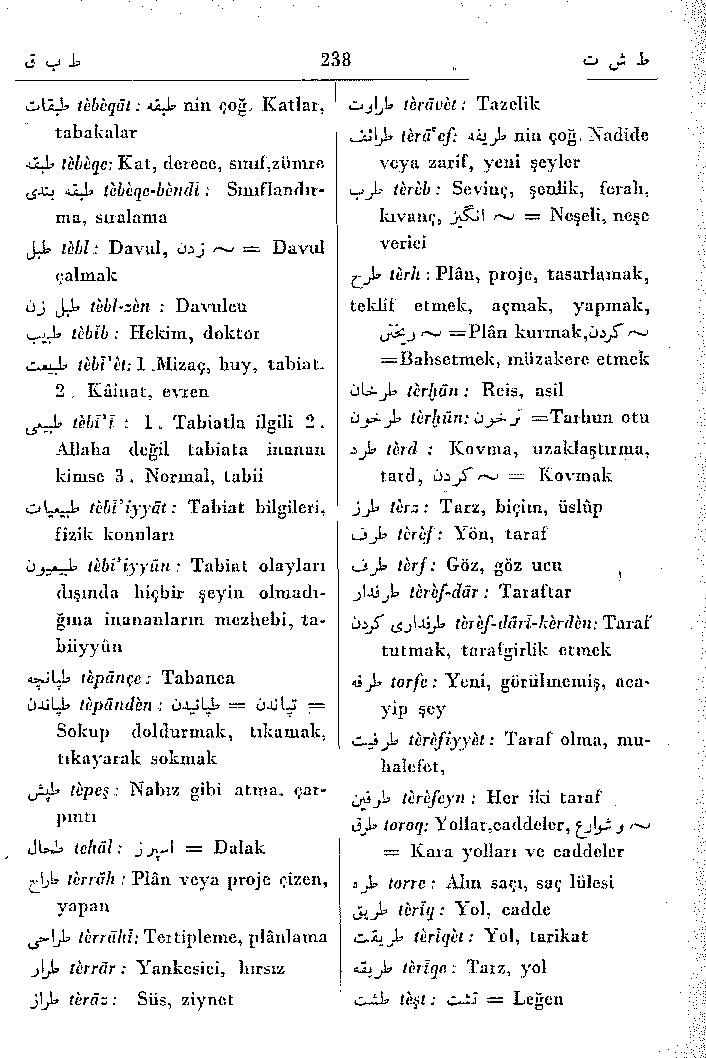 ط ب ق 238 ط ش ت
طبقات tèbèqāt : طبقه nin çoğ. Katlar,
tabakalar
طبقه tèbèqe: Kat, derece, sınıf,zümre
طبقه بندی tèbèqe-bèndi : Sınıflandır-
ma, sıralama
طبل tèbl : Davul, زدن ~ = Davul
çalmak
طبل زن tèbl-zèn : Davulcu
طبیب tèbīb : Hekim, doktor
طبیعت tèbī'èt: 1 .Mizaç, huy, tabiat.
2 . Kâinat, evren
طبیعی tèbī'ī : 1 . Tabiatla ilgili 2 .
Allaha değil tabiata inanan
kimse 3 . Normal, tabii
طبیعیات tèbī'iyyāt : Tabiat bilgileri,
fizik konuları
طبیعیون tèbī'iyyūn : Tabiat olayları
dışında hiçbir şeyin olmadı-
ğına inananların mezhebi, ta-
biiyyûn
طپانچه tèpānçe : Tabanca
طپاندن tèpāndèn : طپانیدن = تپاندن =
Sokup doldurmak, tıkamak,
tıkayarak sokmak
طپش tèpeş : Nabız gibi atma, çar-
pıntı
طحال tehāl : اسپرز = Dalak
طراح tèrrāh : Plân veya proje çizen,
yapan
طراحی tèrrāhī: Tertipleme, plânlama
طرار tèrrār : Yankesici, hırsız
طراز tèrāz : Süs, ziynet
طراوت tèrāvèt : Tazelik
طرائف tèrā'ef: طریفه nin çoğ. Nadide
veya zarif, yeni şeyler
طرب tèrèb : Sevinç, şenlik, ferah,
kıvanç, انگیز ~ = Neşeli, neşe
verici
طرح tèrh : Plân, proje, tasarlamak,
teklif etmek, açmak, yapmak,
ریختن ~ =Plân kurmak, کردن ~
=Bahsetmek, müzakere etmek
طرخان tèrḫān : Reis, asil
طرخون tèrḫūn: ترخون =Tarhun otu
طرد tèrd : Kovma, uzaklaştırma,
tard, کردن ~ = Kovmak
طرز tèrz : Tarz, biçim, üslûp
طرف tèrèf : Yön, taraf
طرف tèrf : Göz, göz ucu
طرفدار tèrèf-dār : Taraftar
طرفداری کردن tèrèf-dārī-kèrdèn: Taraf
tutmak, tarafgirlik etmek
طرفه torfe : Yeni, görülmemiş, aca-
yip şey
طرفیت tèrèfiyyèt : Taraf olma, mu-
halefet,
طرفین tèrèfeyn : Her iki taraf
طرق toroq: Yollar,caddeler, و شوارع ~
= Kara yolları ve caddeler
طره torre : Alın saçı, saç lülesi
طریق tèrīq : Yol, cadde
طریقت tèrīqèt : Yol, tarikat
طریقه tèrīqe : Tarz, yol
طشت tèşt : تشت = Leğen